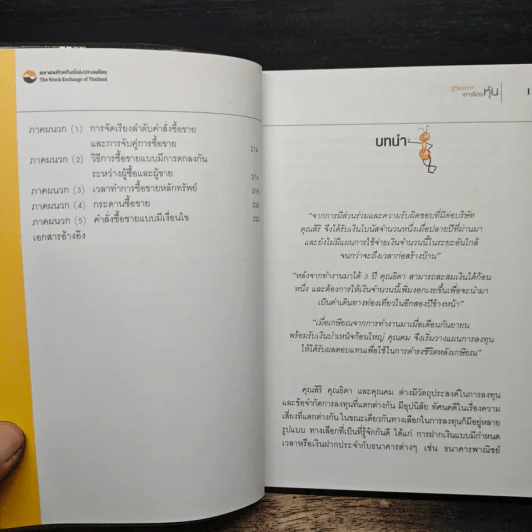 ตลาดหลักทรัพย์แห่งประเทศไทย
The Stock Exchange of Thailand
ภาคผนวก (1) การจัดเรียงลำดับคำสั่งซื้อขาย
และการจับคู่การซื้อขาย 214
ภาคผนวก (2) วิธีการซื้อขายแบบมีการตกลงกัน
ระหว่างผู้ซื้อและผู้ขาย
ภาคผนวก (3) เวลาทำการซื้อขายหลักทรัพย์
ภาคผนวก (4) กระดานซื้อขาย
ภาคผนวก (5) คำสั่งซื้อขายแบบมีเงื่อนไข
เอกสารอ้างอิง
หุ้น 1
บทนำ
“จากการมีส่วนร่วมและความรับผิดชอบที่มีต่อบริษัท
คุณสิริ จึงได้รับเงินโบนัสจำนวนหนึ่งเมื่อปลายปีที่ผ่านมา
และยังไม่มีแผนการใช้จ่ายเงินจำนวนนี้ในระยะอันใกล้
จนกว่าจะถึงเวลาก่อสร้างบ้าน”
“หลังจากทำงานมาได้ 3 ปี คุณธิดา สามารถสะสมเงินได้ก้อน
หนึ่ง และต้องการให้เงินจำนวนนี้เพิ่มงอกเงยขึ้นเพื่อจะนำมา
เป็นค่าเดินทางท่องเที่ยวในอีกสองปีข้างหน้า”
“เมื่อเกษียณจากการทำงานมาเมื่อเดือนกันยายน
พร้อมรับเงินบำเหน็จก้อนใหญ่ คุณคม จึงเริ่มวางแผนการลงทุน
ให้ได้รับผลตอบแทนเพื่อใช้ในการดำรงชีวิตหลังเกษียณ”
คุณสิริ คุณธิดา และคุณคม ต่างมีวัตถุประสงค์ในการลงทุน
และข้อจำกัดการลงทุนที่แตกต่างกัน มีอุปนิสัย ทัศนคติในเรื่องความ
เสี่ยงที่แตกต่างกัน ในขณะเดียวกันทางเลือกในการลงทุนก็มีอยู่หลาย
รูปแบบ ทางเลือกที่เป็นที่รู้จักกันดี ได้แก่ การฝากเงินแบบมีกำหนด
เวลาหรือเงินฝากประจำกับธนาคารต่างๆ เช่น ธนาคารพาณิชย์